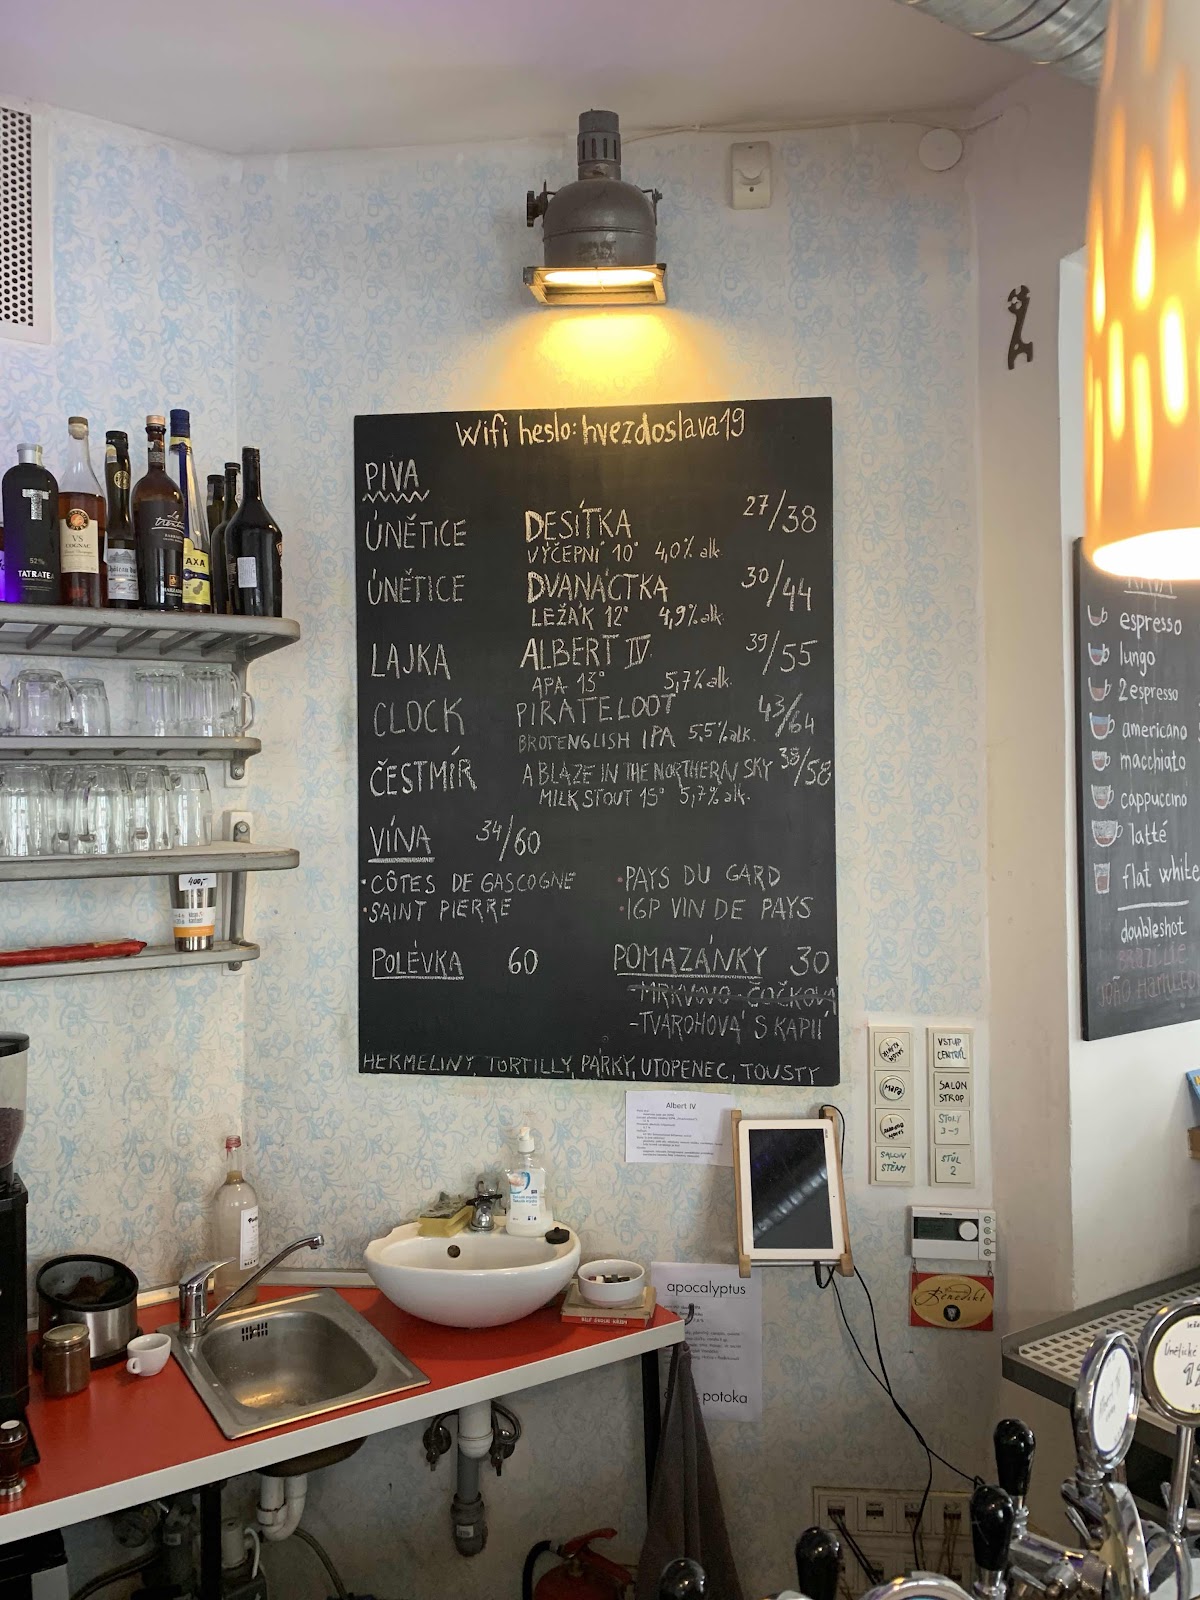 Wifi heslo: hvezdoslava19
PIVA
ÚNĚTICE DESÍTKA 27/38
VÝČEPNÍ 10° 4,0% alk.
ÚNĚTICE DVANÁCTKA 30/44
LEŽÁK 12° 4,9% alk.
LAJKA ALBERT IV. 39/55
APA 13° 5,7% alk.
CLOCK PIRATELOOT 43/64
BROTENGLISH IPA 5,5% alk.
ČESTMÍR ABLAZE IN THE NORTHERN SKY 38/58
MILK STOUT 15° 5,7% alk.
VÍNA 34/60
•CÔTES DE GASCOGNE •PAYS DU GARD
•SAINT PIERRE •IGP VIN DE PAYS
POLÉVKA 60 POMAZÁNKY 30
-MRKVOVO ČOČKOVÁ
-TVAROHOVÁ S KAPIÍ
HERMELINY, TORTILLY, PÁRKY, UTOPENEC, TOUSTY
espresso
lungo
2espresso
americano
macchiato
cappuccino
latté
flat white
doubleshot
BRAZÍLIE
T
52%
TATRATEA
VS
COGNAC
AXA
400,-
Albert IV
VSTUP
CENTRÁL
MAPA
SALON
STROP
STOLY
3-9
SALON
STĚNY
STŮL
2
Benedikt
apocalyptus
potoka
Únětické